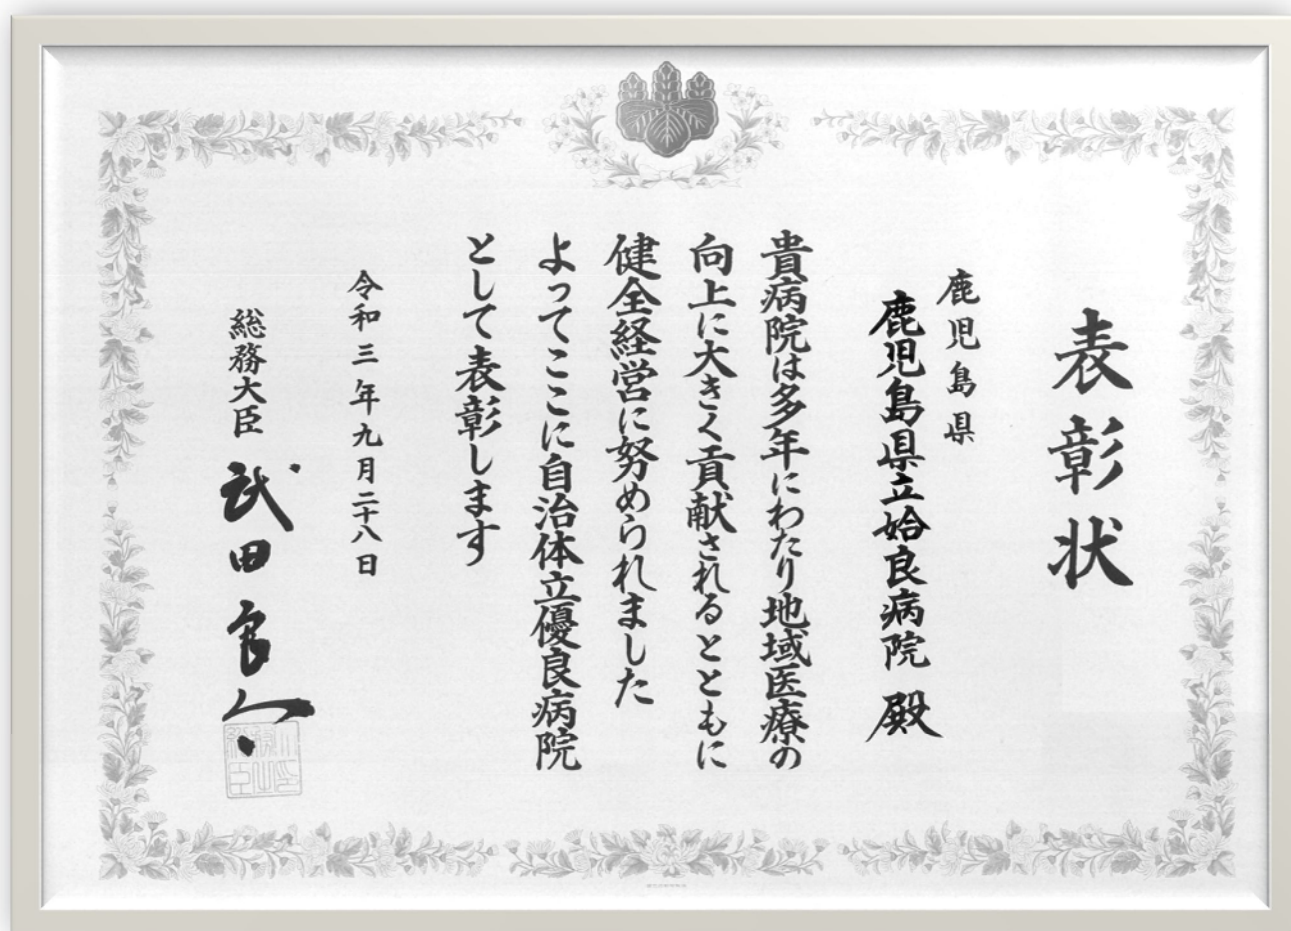 表彰状
鹿児島県
鹿児島県立姶良病院 殿
貴病院は多年にわたり地域医療の
向上に大きく貢献されるとともに
健全経営に努められました
よってここに自治体立優良病院
として表彰します
令和三年九月二十八日
総務大臣 武田良太